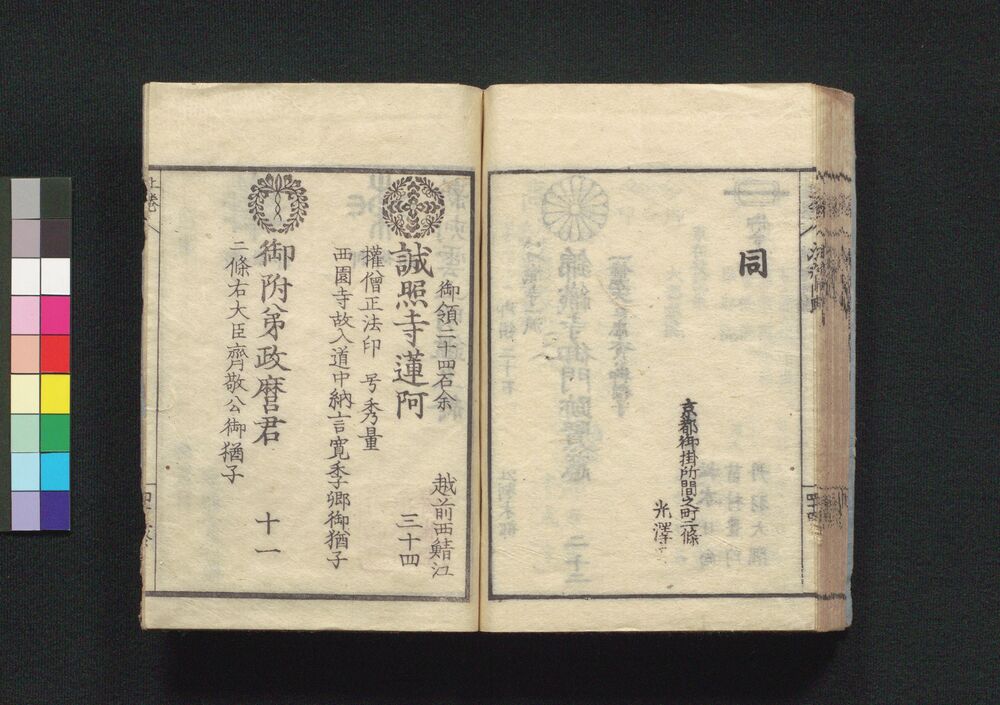 同
京都御掛所間之町二條
光澤寺
御領二十四石余
越前西鯖江
誠照寺蓮阿
三十四
權僧正法印 号秀量
西園寺故入道中納言寛季卿御猶子
御附弟政麿君
十一
二條右大臣齊敬公御猶子